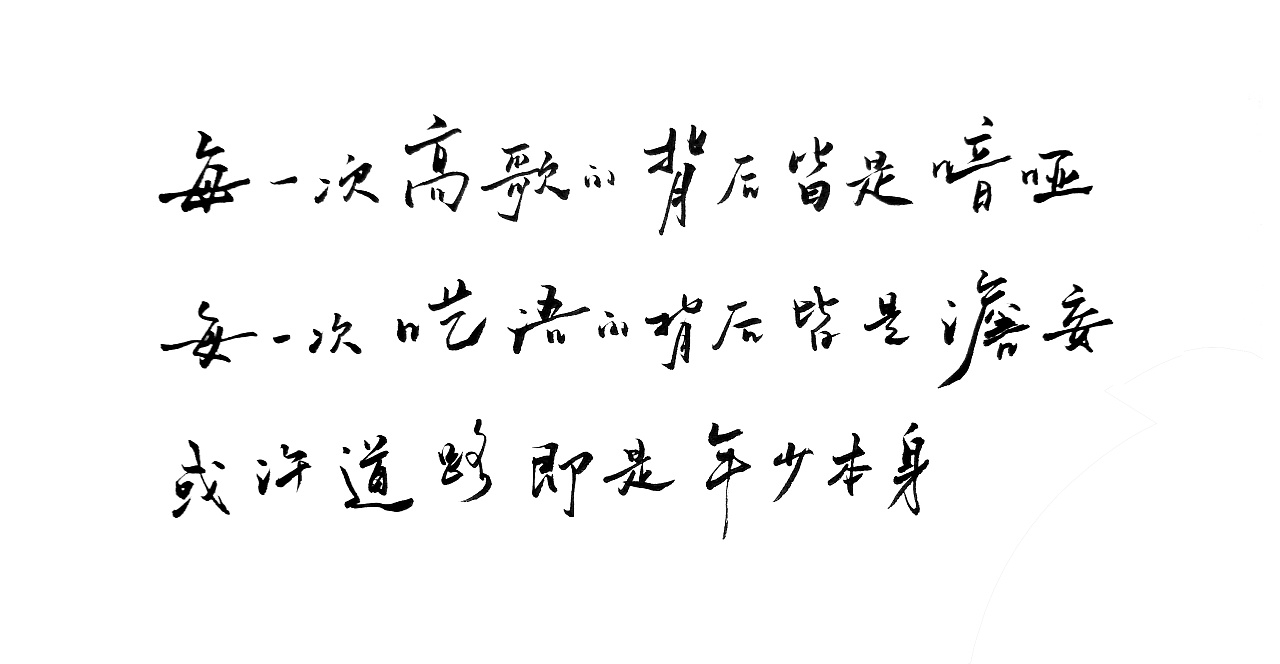 每一次高歌的背后皆是喑哑
每一次呓语的背后皆是谵妄
或许道路即是年少本身